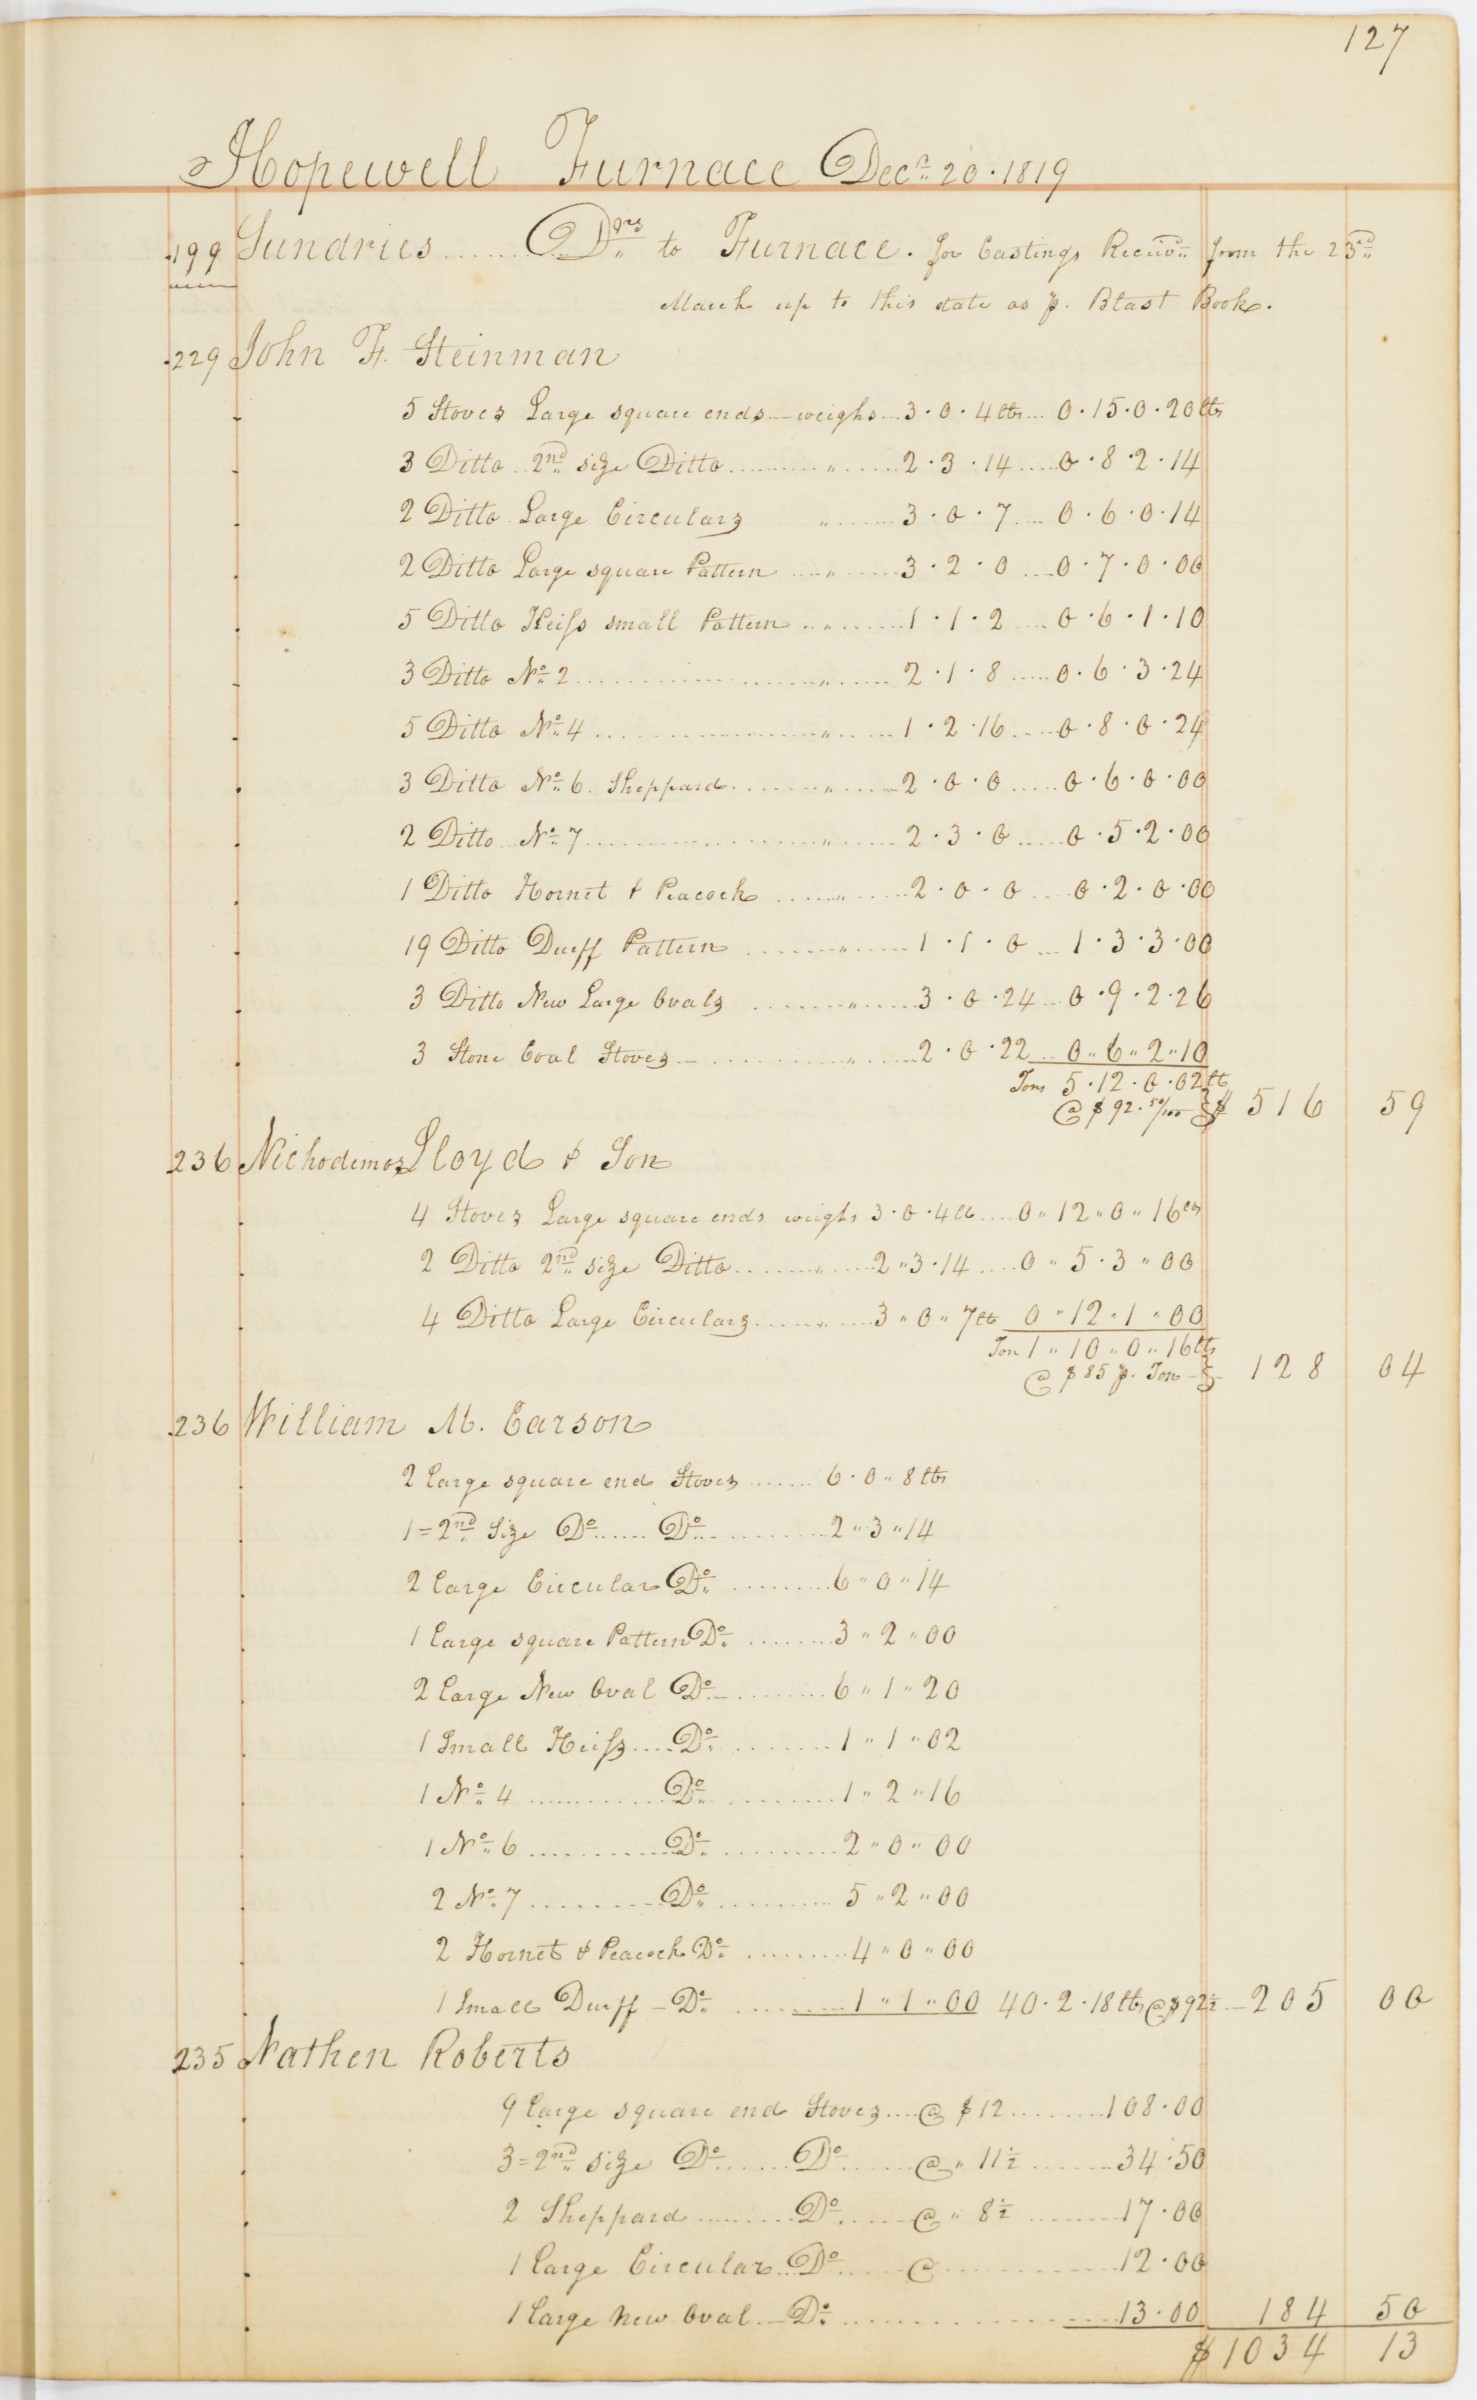 127
Hopewell Furnace Decr 20. 1819
199 Sundries ...... Drs to Furnace. for Castings Receivd from the 23d
March up to this date as p. Blast Book.
229 John F. Steinman
5 Stoves Large square ends — weighs ... 3.0.4 lbs ... 0.15.0.20 lbs
3 Ditto .. 2nd size Ditto .......... " ...... 2.3.14 ..... 0.8.2.14
2 Ditto Large Circulars " ...... 3.0.7 .... 0.6.0.14
2 Ditto Large square Pattern .... " ...... 3.2.0 .... 0.7.0.00
5 Ditto Heiss small Pattern .. " ...... 1.1.2 .... 0.6.1.10
3 Ditto No 2 .................. " ...... 2.1.8 ..... 0.6.3.24
5 Ditto No 4 .................. " ...... 1.2.16 ..... 0.8.0.24
3 Ditto No 6. Sheppard ........ " ..... 2.0.0 ..... 0.6.0.00
2 Ditto .. No 7 .................. " ...... 2.3.0 ..... 0.5.2.00
1 Ditto Hornet & Peacock ...... " ...... 2.0.0 .... 0.2.0.00
19 Ditto Durff Pattern ........ " ...... 1.1.0 ... 1.3.3.00
3 Ditto New Large Ovals ........ " ...... 3.0.24 ... 0.9.2.26
3 Stone Coal Stoves — .......... " ...... 2.0.22 ... 0"6"2"10
Tons 5.12.0.02 lb
@ $92.50/100 $ 516 59
236 Nichodemos Lloyd & Son
4 Stoves Large square ends weighs 3.0.4 lb .... 0"12"0"16 lbs
2 Ditto 2nd size Ditto ........ " ..... 2"3.14 ..... 0"5.3"00
4 Ditto Large Circulars ...... " ..... 3"0"7 lb 0"12"1"00
Ton 1"10"0"16 lbs
@ $85 p. Ton — 128 04
236 William M. Carson
2 Large square end Stoves ...... 6.0"8 lbs
1 = 2nd Size Do ...... Do .......... 2"3"14
2 Large Circular Do ......... 6"0"14
1 Large square Pattern Do ........ 3"2"00
2 Large New Oval Do — ........ 6"1"20
1 Small Heiss .... Do .......... 1"1"02
1 No 4 ............ Do .......... 1"2"16
1 No 6 ............ Do .......... 2"0"00
2 No 7 ............ Do .......... 5"2"00
2 Hornet & Peacock Do ......... 4"0"00
1 Small Durff — Do ......... 1"1"00 40.2.18 lbs @ $92½ — 205 00
235 Nathen Roberts
9 Large square end Stoves .... @ $12 ......... 108.00
3 = 2nd size Do ...... Do ...... @ " 11½ ........ 34.50
2 Sheppard ......... Do ...... @ " 8½ ......... 17.00
1 Large Circular .. Do ...... @ ............ 12.00
1 Large New Oval — Do .................. 13.00 184 50
$ 1034 13